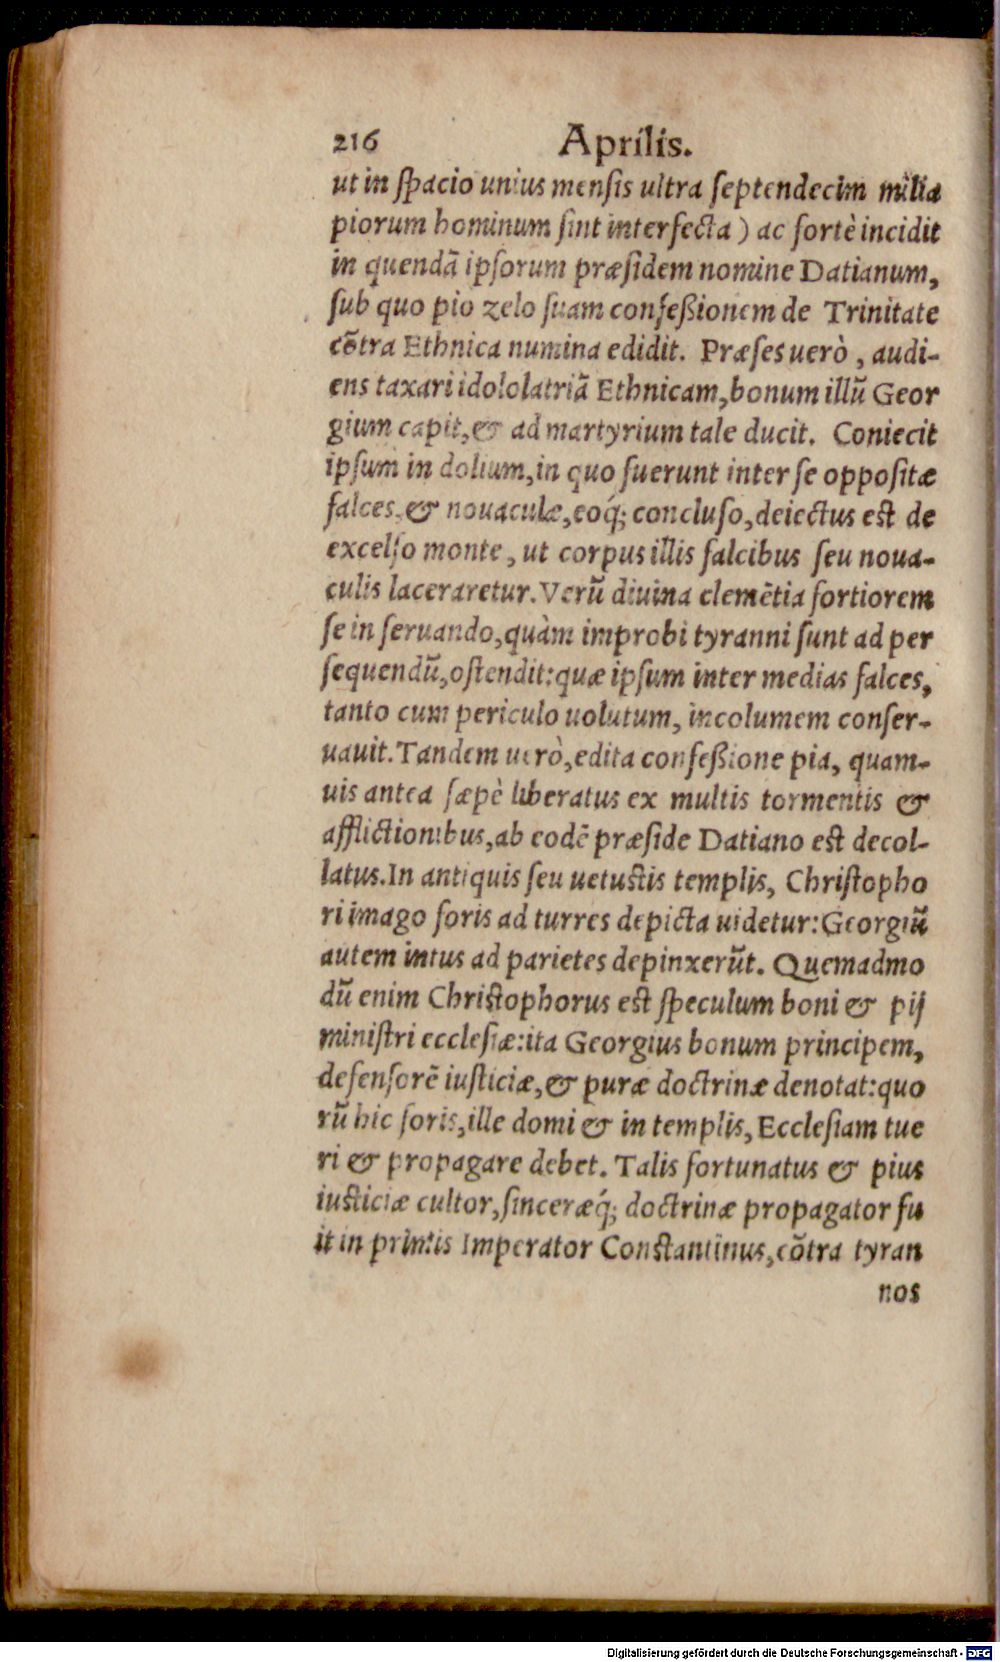 216 Aprilis.
ut in ſpacio unius menſis ultra ſeptendecim milia
piorum hominum ſint interfecta) ac fortè incidit
in quendã ipſorum præſidem nomine Datianum,
ſub quo pio zelo ſuam confeßionem de Trinitate
cõtra Ethnica numina edidit. Præſes uerò, audi-
ens taxari idololatriã Ethnicam, bonum illũ Geor
gium capit, & ad martyrium tale ducit. Coniecit
ipſum in dolium, in quo fuerunt inter ſe oppoſitæ
falces, & nouaculæ, eoq́; concluſo, deiectus eſt de
excelſo monte, ut corpus illis falcibus ſeu noua-
culis laceraretur. Verũ diuina clemẽtia fortiorem
ſe in ſeruando, quàm improbi tyranni ſunt ad per
ſequendũ, oſtendit: quæ ipſum inter medias falces,
tanto cum periculo uolutum, incolumem conſer-
uauit. Tandem uerò, edita confeßione pia, quam-
uis antea ſæpè liberatus ex multis tormentis &
afflictionibus, ab eodẽ præſide Datiano eſt decol-
latus. In antiquis ſeu uetuſtis templis, Chriſtopho
ri imago foris ad turres depicta uidetur: Georgiũ
autem intus ad parietes depinxerũt. Quemadmo
dũ enim Chriſtophorus eſt ſpeculum boni & pij
miniſtri eccleſiæ: ita Georgius bonum principem,
defenſorẽ iuſticiæ, & puræ doctrinæ denotat: quo
rũ hic foris, ille domi & in templis, Eccleſiam tue
ri & propagare debet. Talis fortunatus & pius
iuſticiæ cultor, ſinceræq́; doctrinæ propagator fu
it in primis Imperator Conſtantinus, cõtra tyran
nos
Digitalisierung gefördert durch die Deutsche Forschungsgemeinschaft - DFG